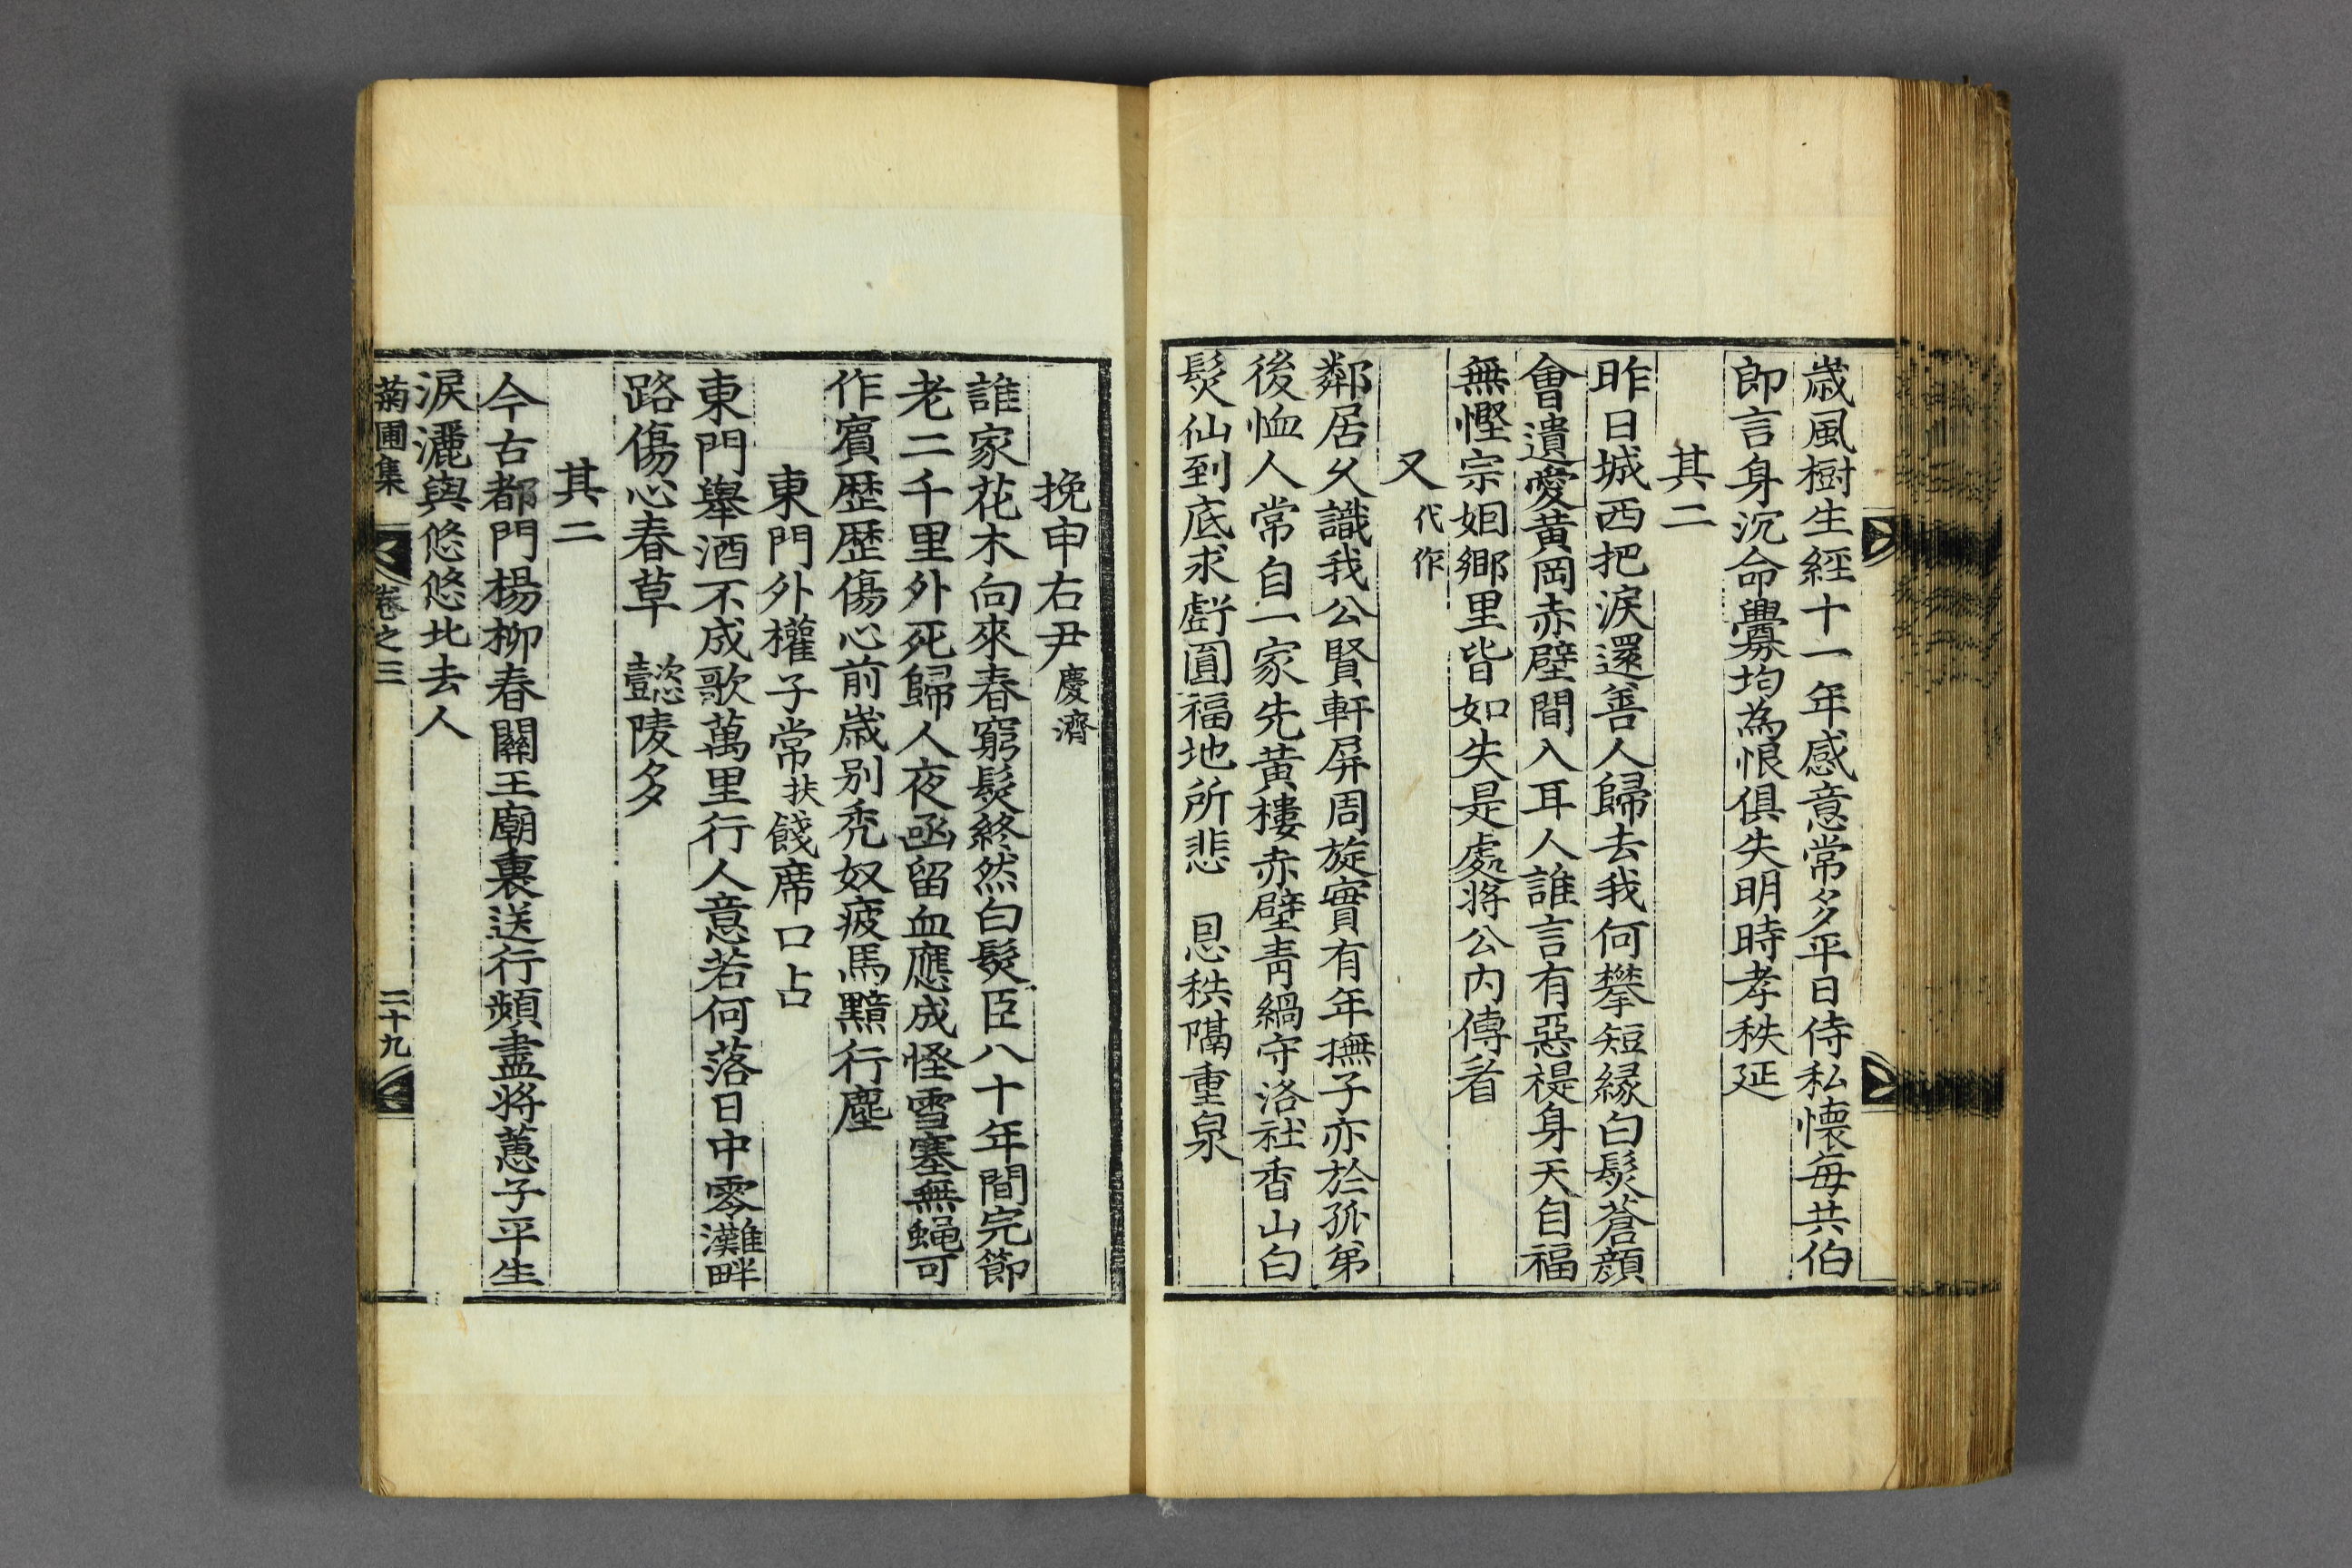 歲風樹生經十一年感意常多平日侍私懷每共伯
郎言身沉命釁均爲恨俱失明時孝秩延
其二
昨日城西把淚還善人歸去我何攀短緣白髮蒼顔
會遺愛黃岡赤壁間入耳人誰言有惡禔身天自福
無慳宗姻鄉里皆如失是處將公內傳看
又代作
鄰居久識我公賢軒屏周旋實有年撫子亦於孤弟
後恤人常自一家先黃樓赤壁靑綸守洛社香山白
髮仙到底求虧圓福地所悲 恩秩隔重泉
挽申右尹慶濟
誰家花木向來春窮髮終然白髮臣八十年間完節
老二千里外死歸人夜函留血應成怪雪塞無蝇可
作賓歷歷傷心前歲別禿奴疲馬黯行塵
東門外權子常扶餞席口占
東門擧酒不成歌萬里行人意若何落日中零灘畔
路傷心春草懿陵多
其二
今古都門楊柳春關王廟裏送行頻盡將蒠子平生
淚灑與悠悠北去人
菊圃集 卷之三 二十九